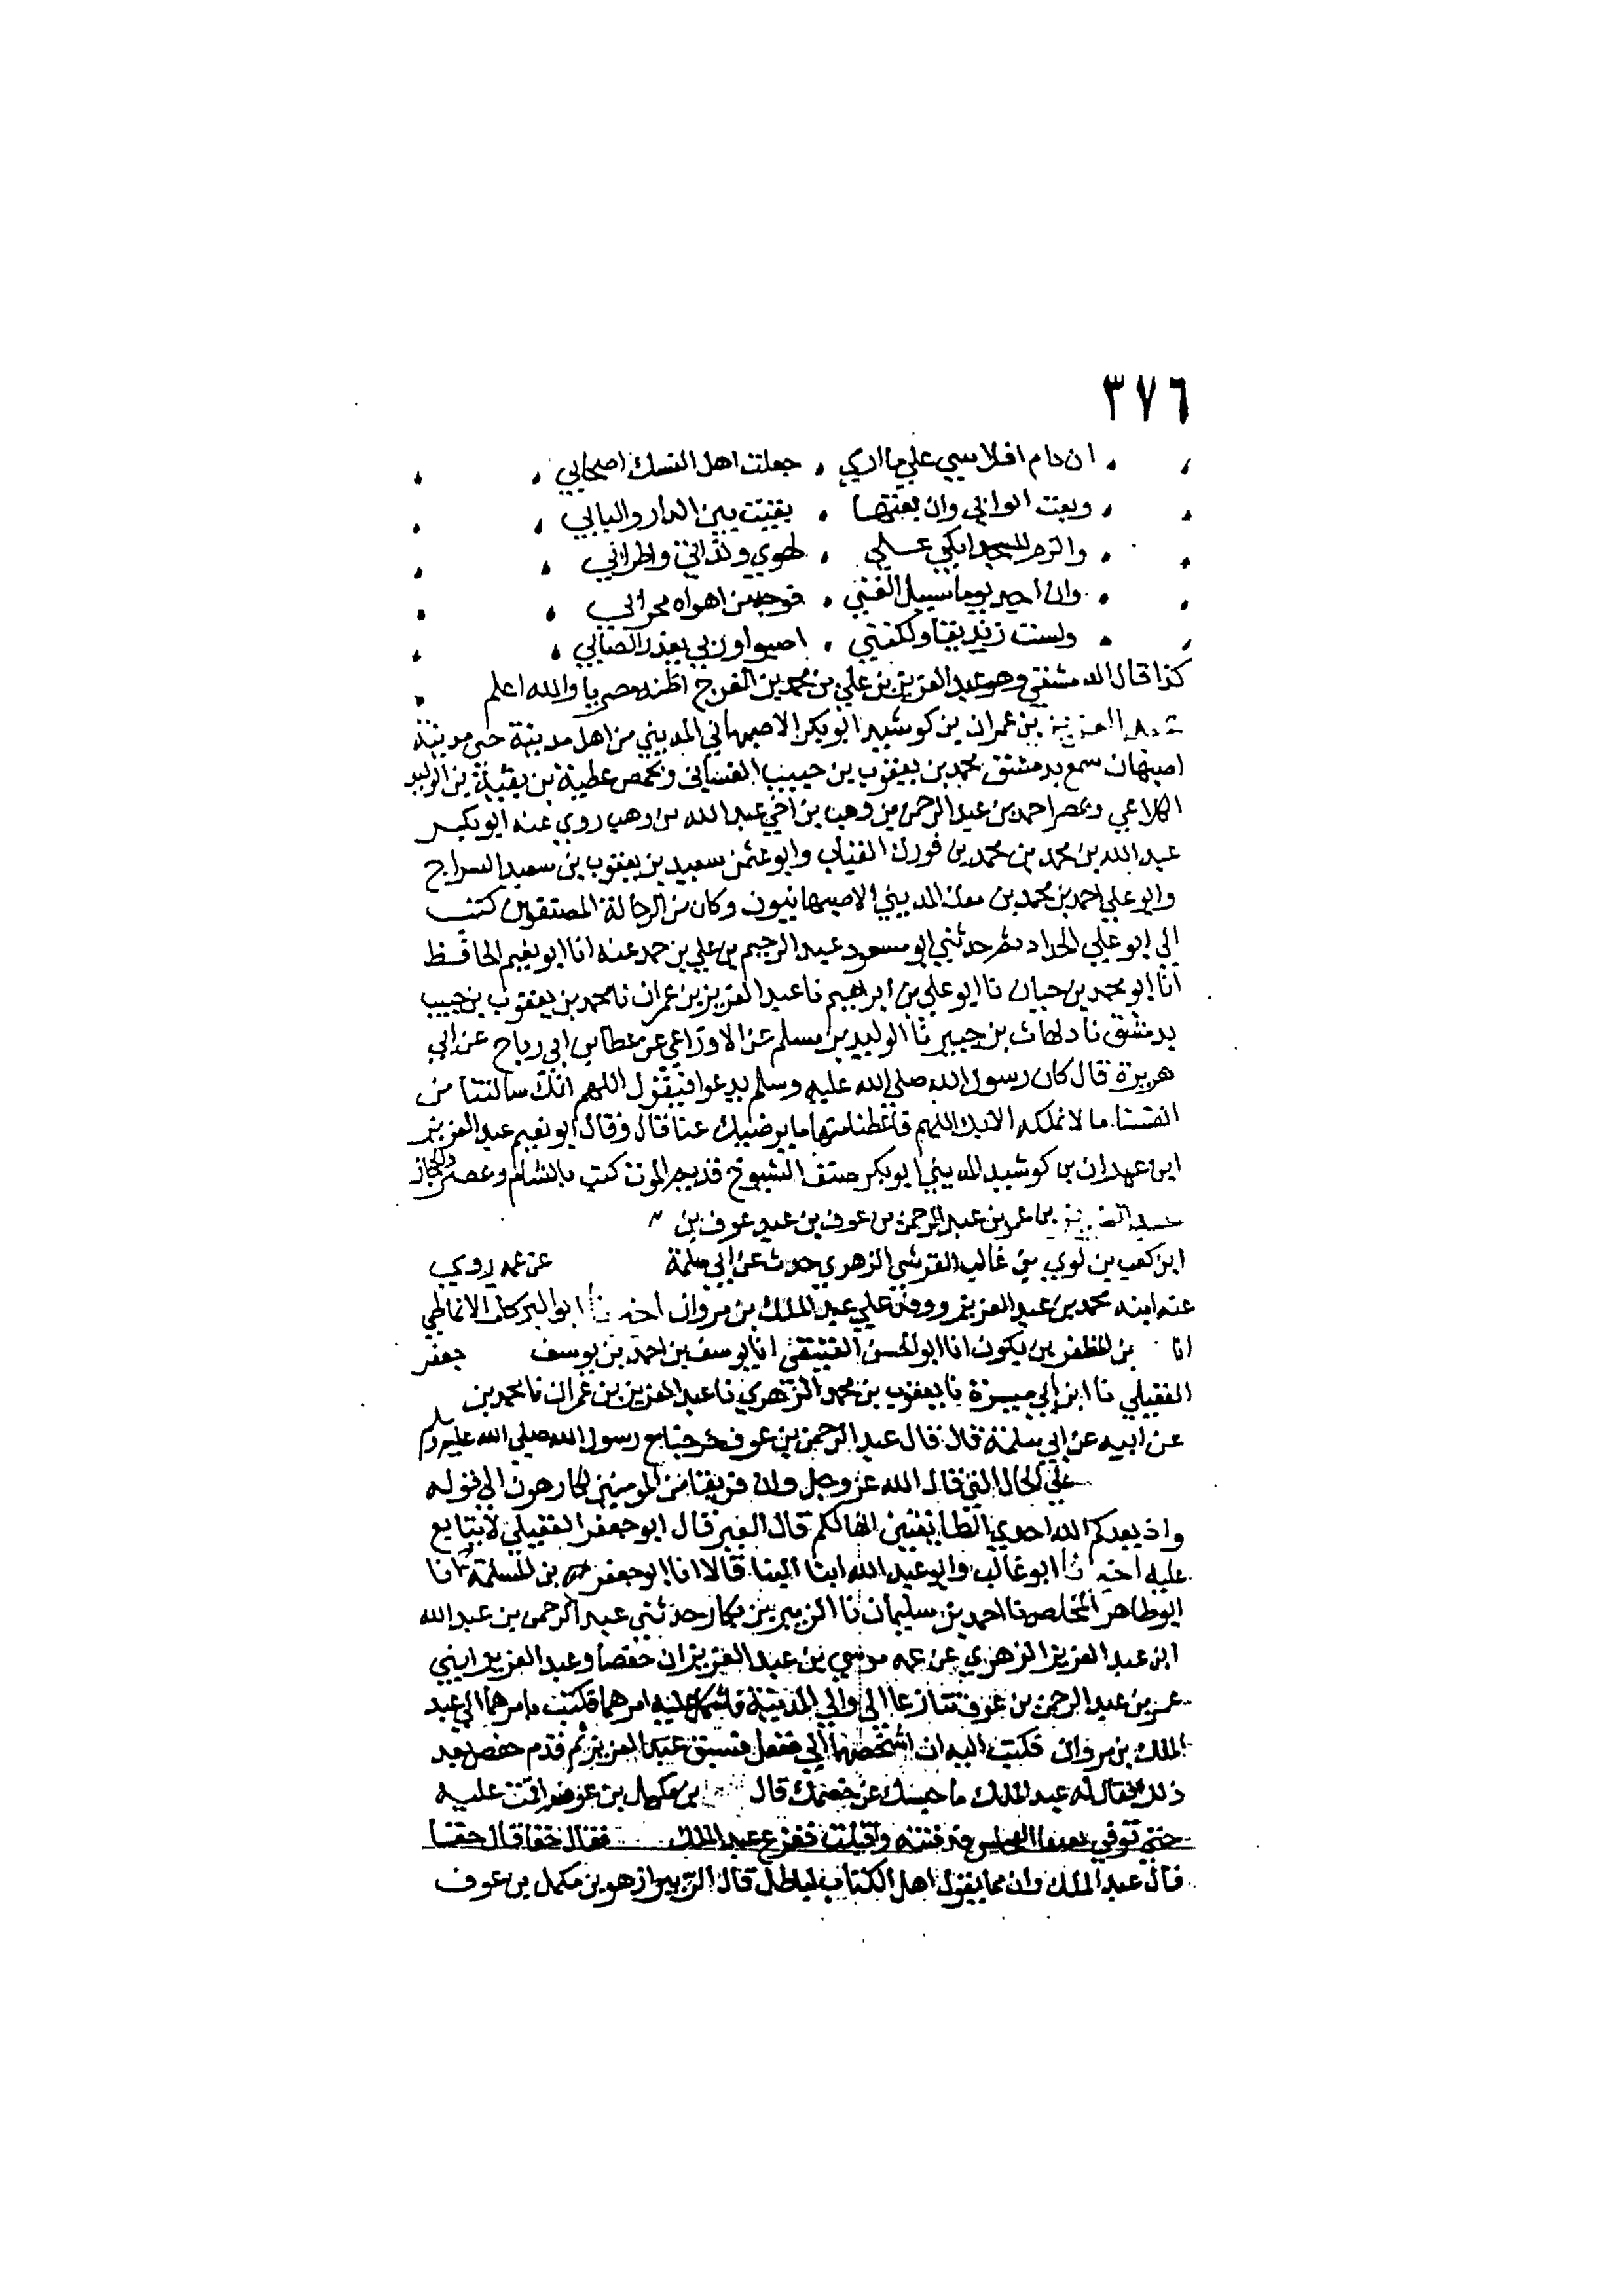 ٣٧٦
ان دام افلاسي علي ما اري جعلت اهل النسك اصحابي
وبعت ابوابي وان بعتها بقيت بين الدار والبابي
والزم المسجد ابكي علي لهوي ولذاتي واطرابي
وان اجد يوما سبيل الغني فوجه من اهواه محرابي
ولست زنديقا ولكنني اصبوا وربي يعذر الصابي
كذا قال الدمشقي وهو عبد العزيز بن علي بن محمد بن الفرج اظنه مصريا والله اعلم
العزيز بن عمران بن كوشيد ابو بكر الاصبهاني المديني من اهل مدينة جي مدينة
اصبهان سمع بدمشق محمد بن يعقوب بن حبيب الغساني وبحمص عطية بن بقية بن الوليد
الكلاعي وبمصر احمد بن عبد الرحمن بن وهب بن اخي عبد الله بن وهب روي عنه ابو بكر
عبد الله بن محمد بن محمد بن فورك القباب وابو عثمن سعيد بن يعقوب بن سعيد السراج
وابو علي احمد بن محمد بن المديني الاصبهانيون وكان من الرحالة المصنفين كتب
الي ابو علي الحداد ثم حدثني ابو مسعود عبد الرحيم بن علي بن حمد عنه انا ابو نعيم الحافظ
انا ابو محمد بن حيان نا ابو علي بن ابراهيم نا عبد العزيز بن عمران نا محمد بن يعقوب بن حبيب
بدمشق نا دلهاث بن جبير نا الوليد بن مسلم عن الاوزاعي عن عطا بن ابي رباح عن ابي
هريرة قال كان رسول الله صلي الله عليه وسلم يدعوا فيقول اللهم انك سالتنا من
انفسنا ما لا نملكه الا بك اللهم فاعطنا منها ما يرضيك عنا قال وقال ابو نعيم عبد العزيز
ابن عمران بن كوشيد المديني ابو بكر صنف الشيوخ قديم الموت كتب بالشام ومصر والحجاز
عبد العزيز بن عمر بن عبد الرحمن بن عوف بن عبد عوف بن
ابن كعب بن لوي بن غالب القرشي الزهري حدث عن ابي سلمة عن عمه روي
عنه ابنه محمد بن عبد العزيز ووفد علي عبد الملك بن مروان اخبرنا ابو البركات الانماطي
انا بن المظفر بن بكران انا ابو الحسن العتيقي انا يوسف بن احمد بن يوسف جعفر
العقيلي نا ابن ابي ميسرة نا يعقوب بن محمد الزهري نا عبد العزيز بن عمران نا محمد بن
عن ابيه عن ابي سلمة قال قال عبد الرحمن بن عوف خرجنا مع رسول الله صلي الله عليه وسلم
علي الحال التي قال الله عز وجل وان فريقا من المومنين لكارهون الي قوله
واذ يعدكم الله احدي الطايفتين انها لكم قال العير قال ابو جعفر العقيلي لا يتابع
عليه اخبرنا ابو غالب وابو عبد الله ابنا البنا قالا انا ابو جعفر بن المسلمة انا
ابو طاهر المخلص نا احمد بن سليمان نا الزبير بن بكار حدثني عبد الرحمن بن عبد الله
ابن عبد العزيز الزهري عن عمه موسي بن عبد العزيز ان حفصا وعبد العزيز ابني
عمر بن عبد الرحمن بن عوف تنازعا الي والي المدينة فاشكل عليه امرهما فكتب بامرهما الي عبد
الملك بن مروان فكتب اليه ان اشخصهما الي ففعل فسبق عبد العزيز ثم قدم حفص بعد
ذلك فقال له عبد الملك ما حبسك عن خصمك قال بن مكمل بن عوف اقمت عليه
حتي توفي فدفنته واقبلت ففزع عبد الملك فقال حقا قال حقا
قال عبد الملك وان مما يقول اهل الكتاب لباطل قال الزبير ازهر بن مكمل بن عوف